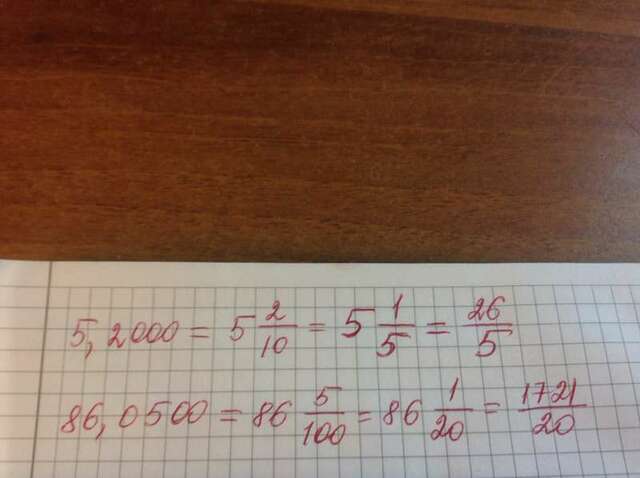 5,2000 = 5 2/10 = 5 1/5 = 26/5
86,0500 = 86 5/100 = 86 1/20 = 1721/20